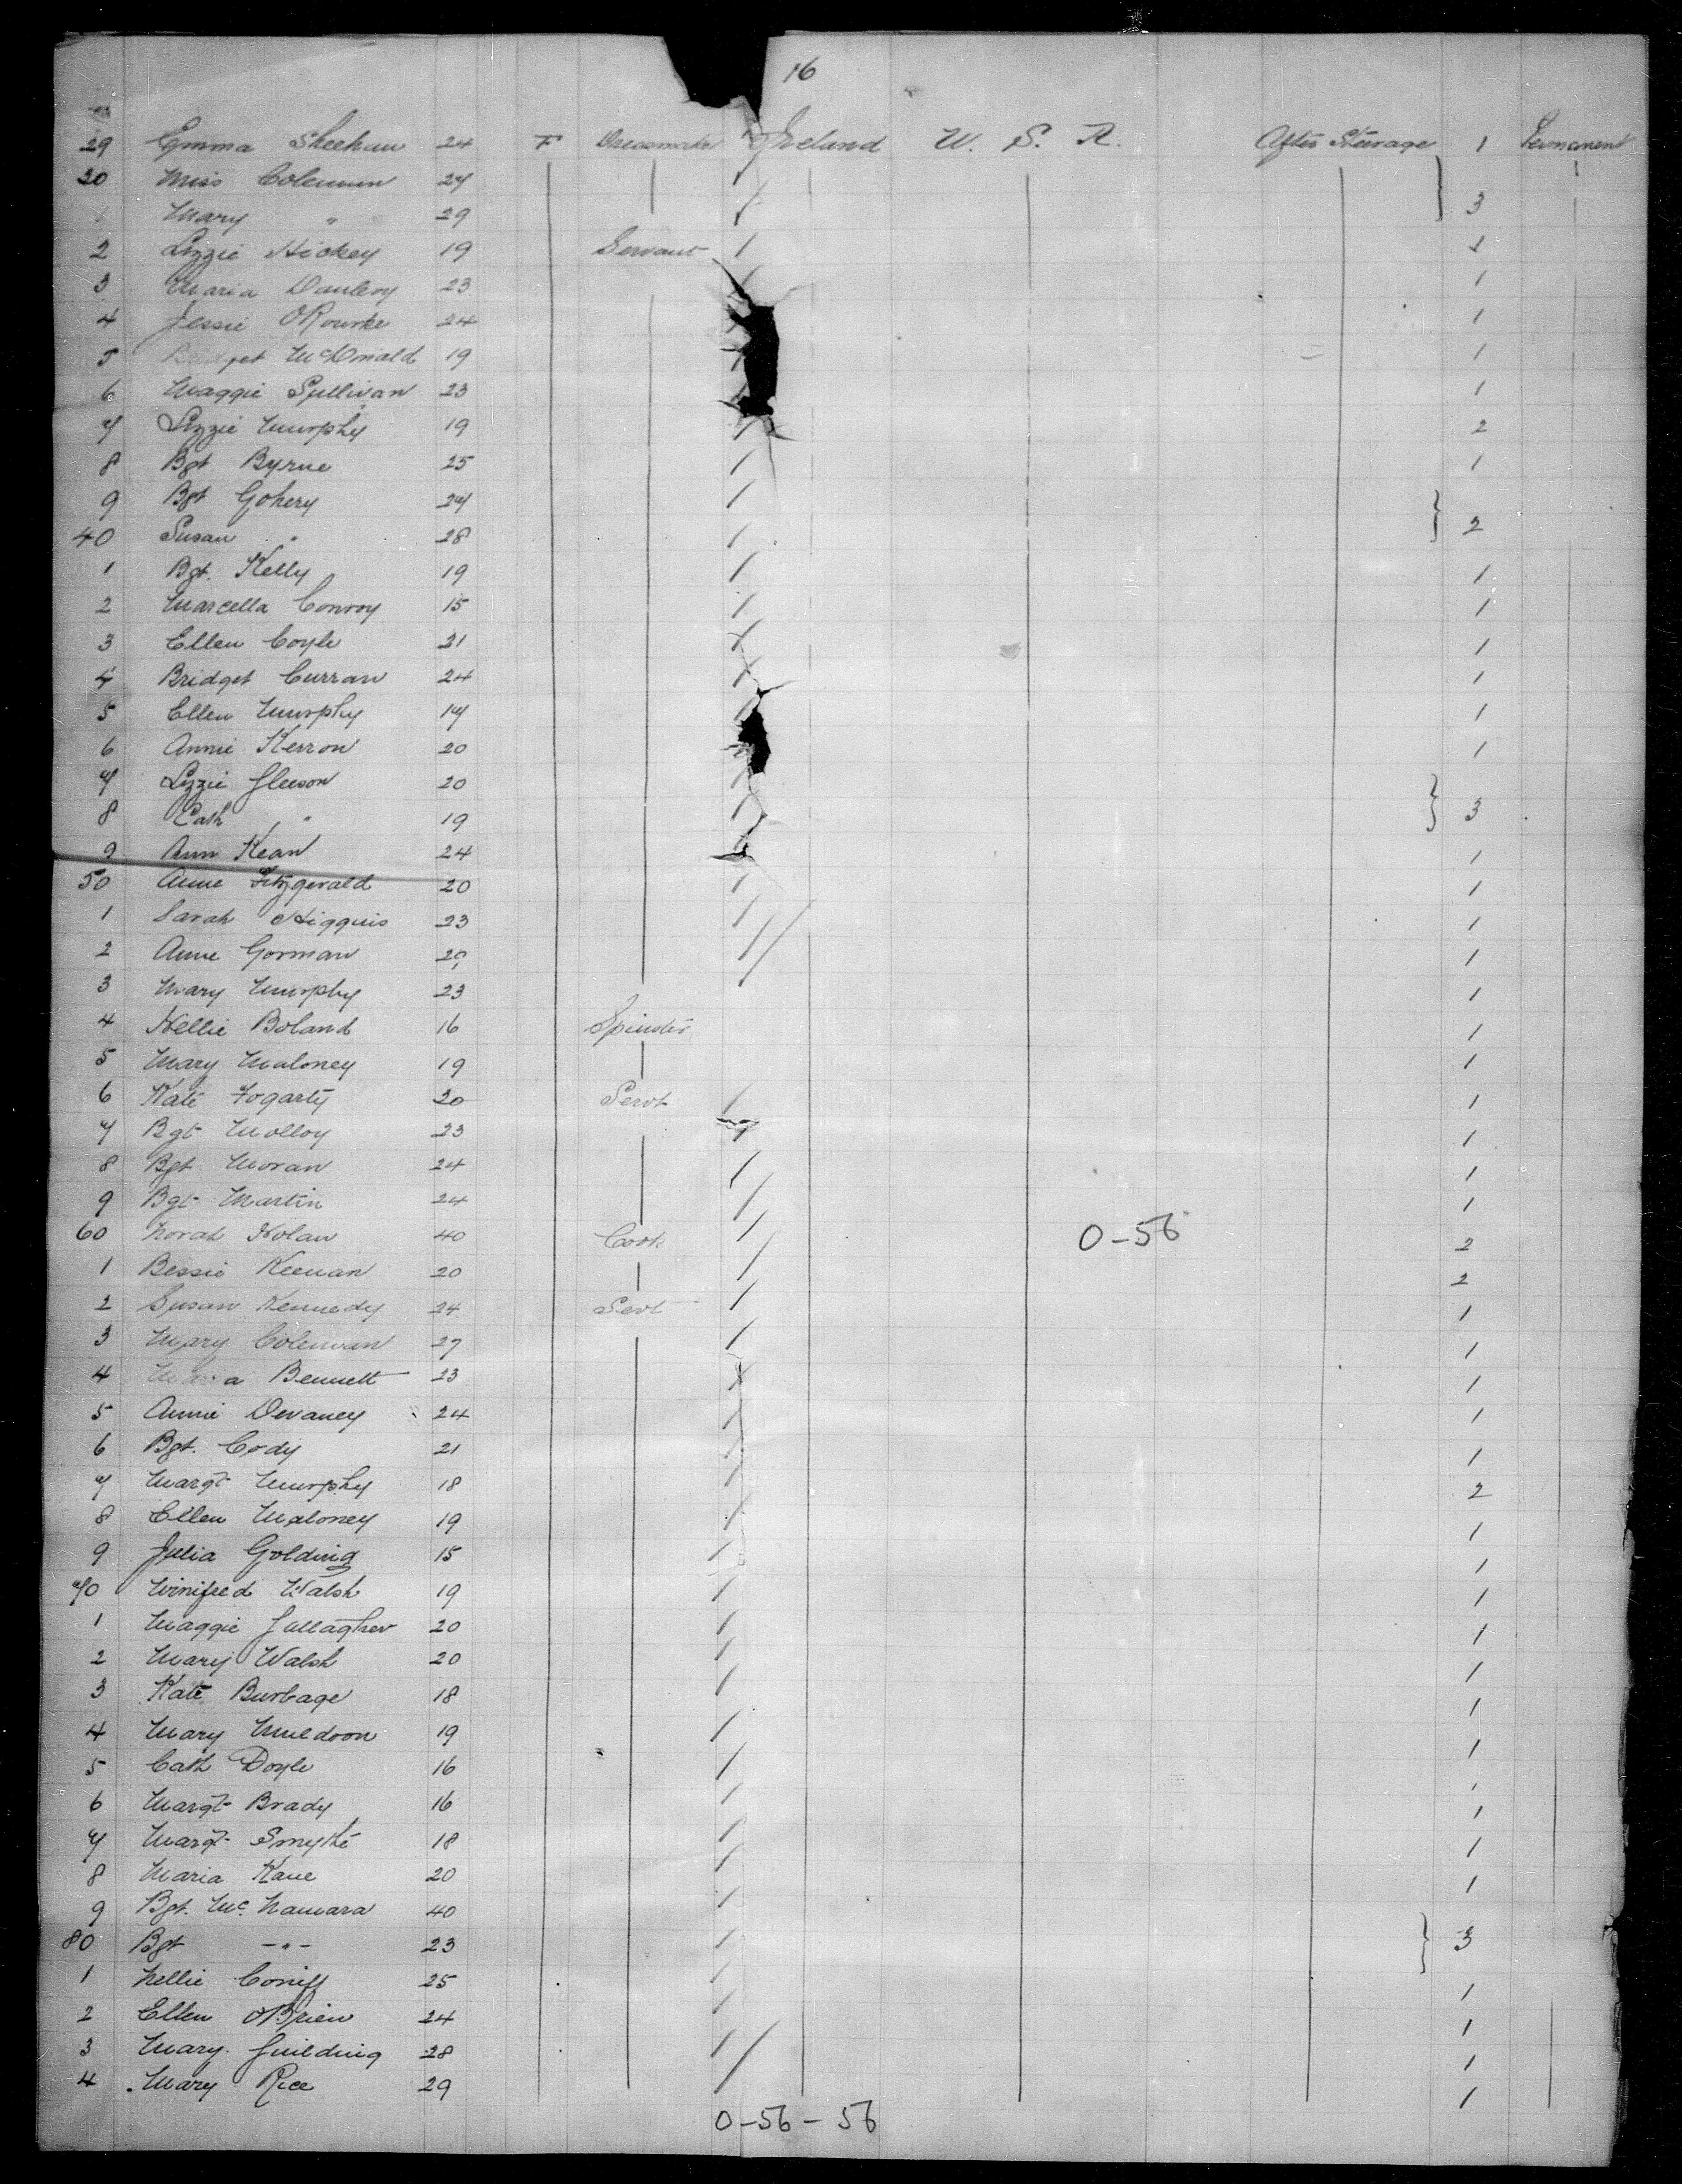 16
29 Emma Sheehan 24 F Dressmaker Ireland U. S. A. After Steerage 1 Permanent
30 Miss Coleman 27
1 Mary " 29 } 3
2 Lizzie Hickey 19 Servant 1 1
3 Maria 23 1
4 Jessie O'Rourke 24 1
5 Bridget McDonald 19 1
6 Maggie Sullivan 23 1
7 Lizzie Murphy 19 2
8 Bgt Byrne 25 1
9 Bgt Gohery 27
40 Susan " 28 } 2
1 Bgt. Kelly 19 1
2 Marcella Conroy 15 1
3 Ellen Coyle 21 1
4 Bridget Curran 24 1
5 Ellen Murphy 17 1
6 Annie Kerron 20 1
7 Lizzie Gleeson 20
8 Cath " 19 } 3
9 Ann Kean 24 1
50 Anne Fitzgerald 20 1
1 Sarah Higgins 23 1
2 Anne Gorman 29 1
3 Mary Murphy 23 1
4 Nellie Boland 16 Spinster 1
5 Mary Maloney 19 1
6 Kate Fogarty 20 Servt 1
7 Bgt Molloy 23 1
8 Bgt Moran 24 1
9 Bgt Martin 24 1
60 Norah Nolan 40 Cook 0-56 2
1 Bessie Keenan 20 2
2 Susan Kennedy 24 Servt 1
3 Mary Coleman 27 1
4 Maria Bennett 23 1
5 Annie Devaney 24 1
6 Bgt. Cody 21 1
7 Margt Murphy 18 2
8 Ellen Maloney 19 1
9 Julia Golding 15 1
70 Winifred Walsh 19 1
1 Maggie Gallagher 20 1
2 Mary Walsh 20 1
3 Kate Burbage 18 1
4 Mary Muldoon 19 1
5 Cath Doyle 16 1
6 Margt Brady 16 1
7 Margt Smythe 18 1
8 Maria Kane 20 1
9 Bgt. McNamara 40
80 Bgt -"- 23 } 3
1 Nellie Coniff 25 1
2 Ellen O'Brien 24 1
3 Mary Guilding 28 1
4 Mary Rice 29 1
0-56-56